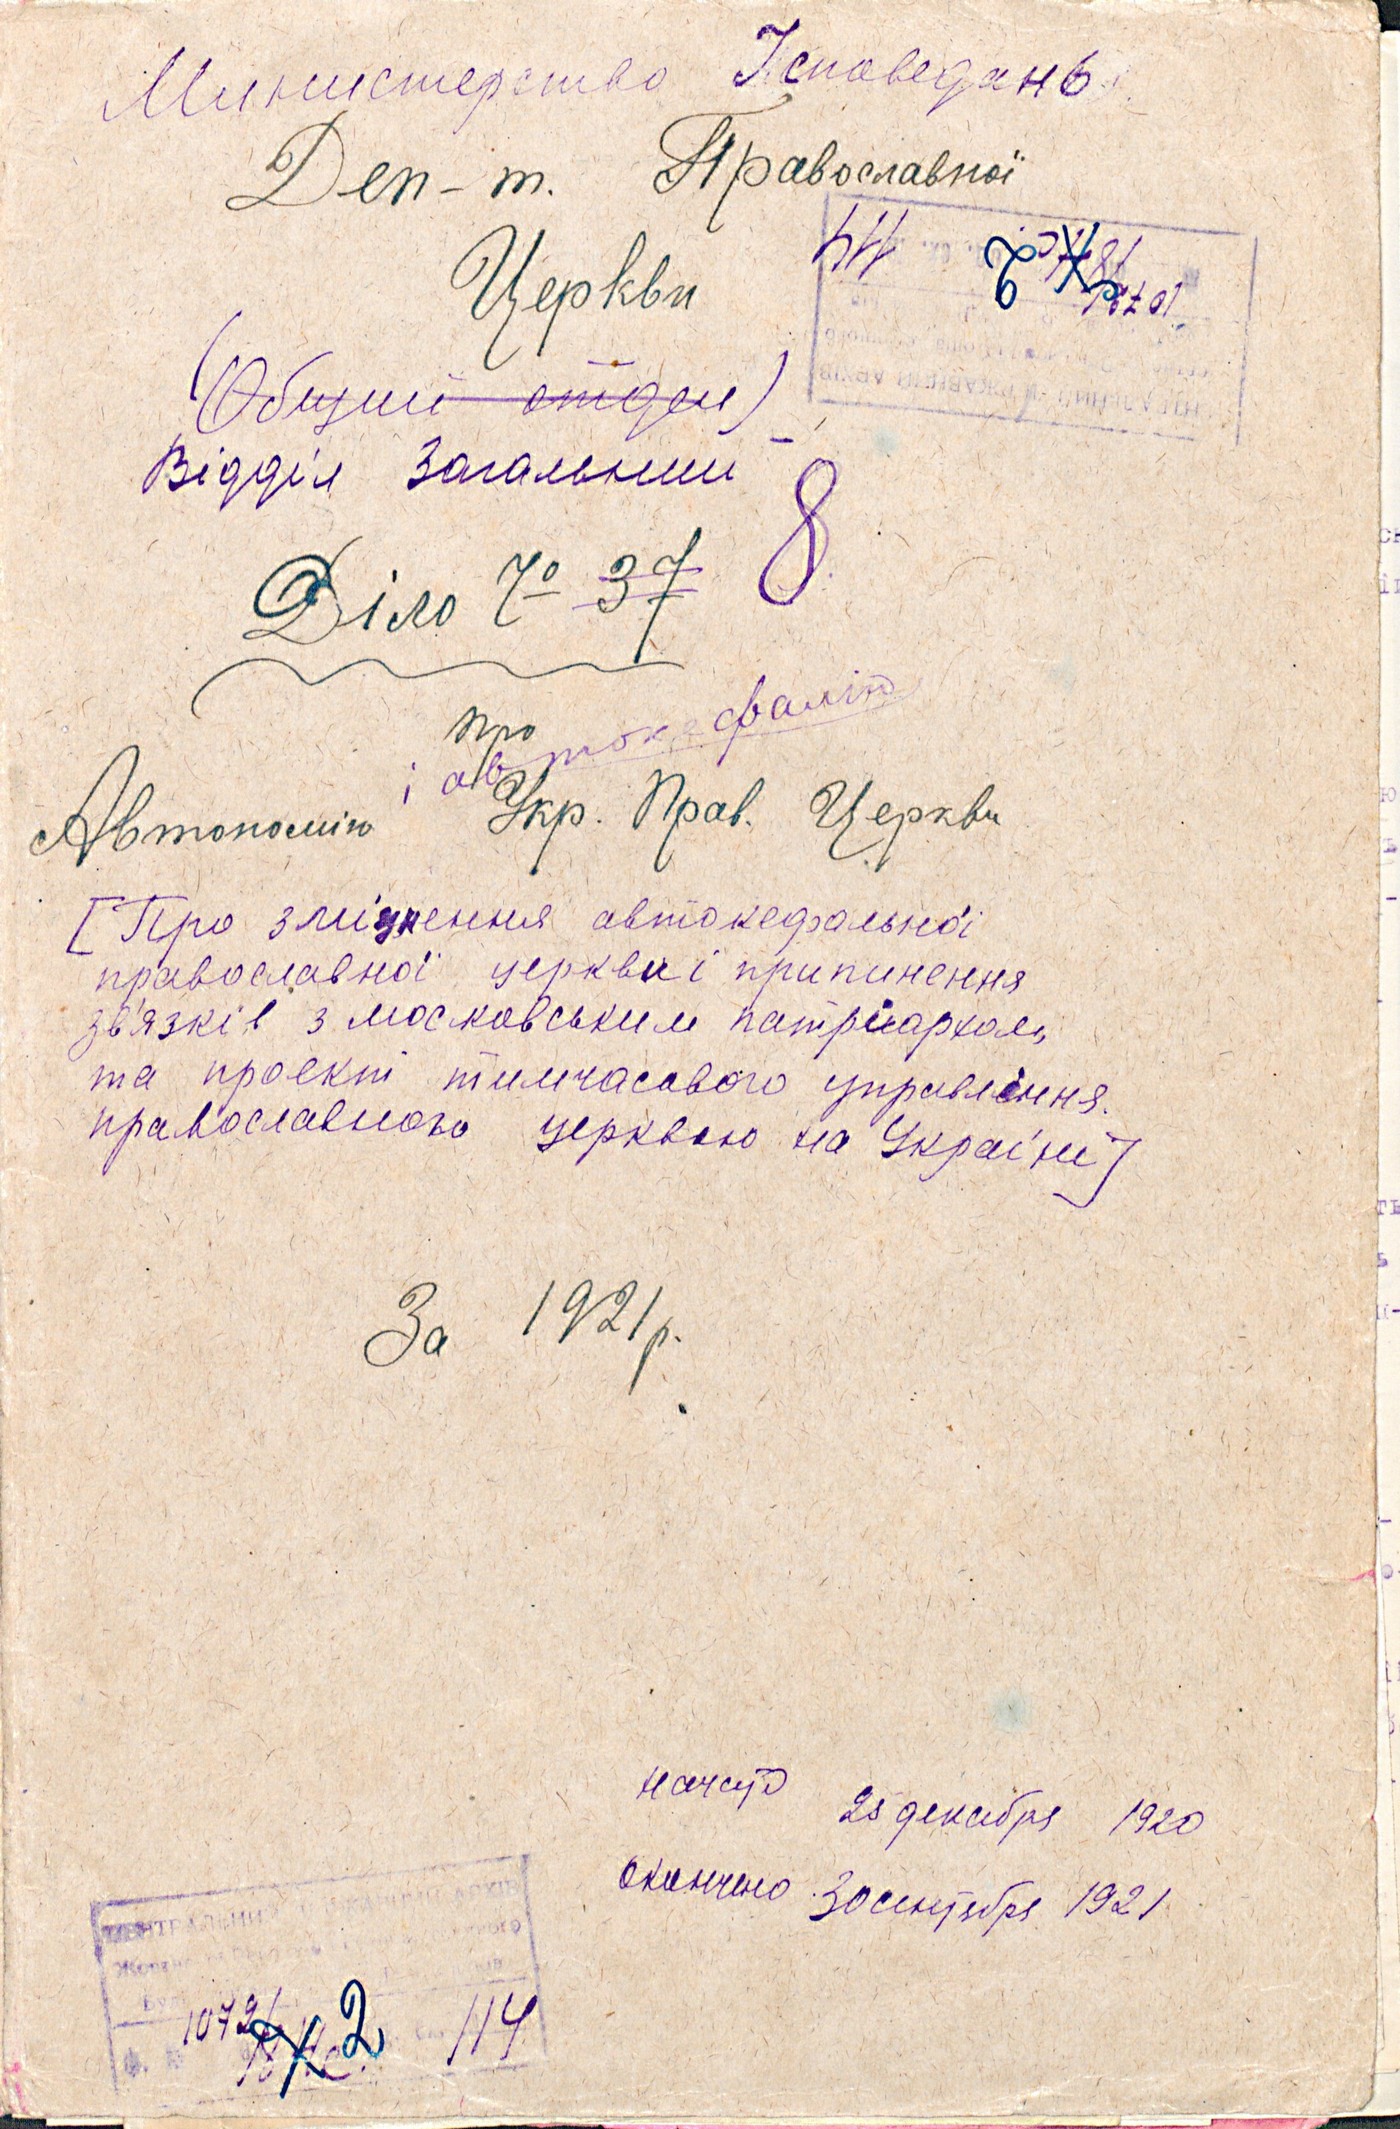 Министерство Ісповедань
Деп-т. Православной
Церкви
114 2 1072
(Общий отдел)
Відділ Загальний
8
Діло № 37
про
і автокефалію
Автономію Укр. Прав. Церкви
[Про зміцнення автокефальної
православної церкви і припинення
зв'язків з московським патріархом,
та проект тимчасового управління
православною церквою на Україні]
За 1921 р.
начато
25 декабря 1920
окончено 30 сентября 1921
ЦЕНТРАЛЬНИЙ ДЕРЖАВНИЙ АРХІВ
1072 2 114